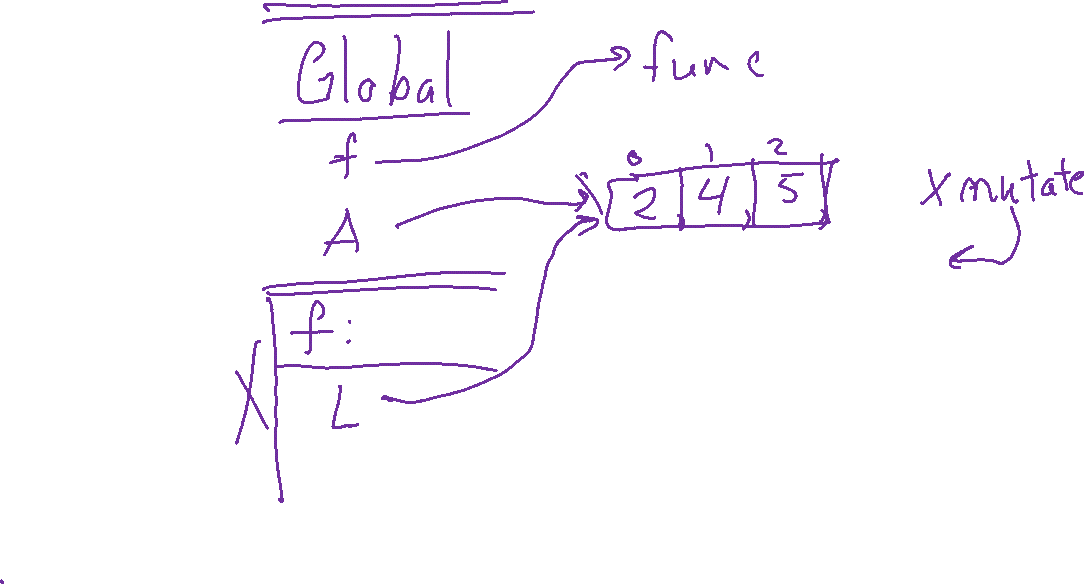 Global
func
f
0 1 2
2 4 5
X mutate
A
f:
X
L